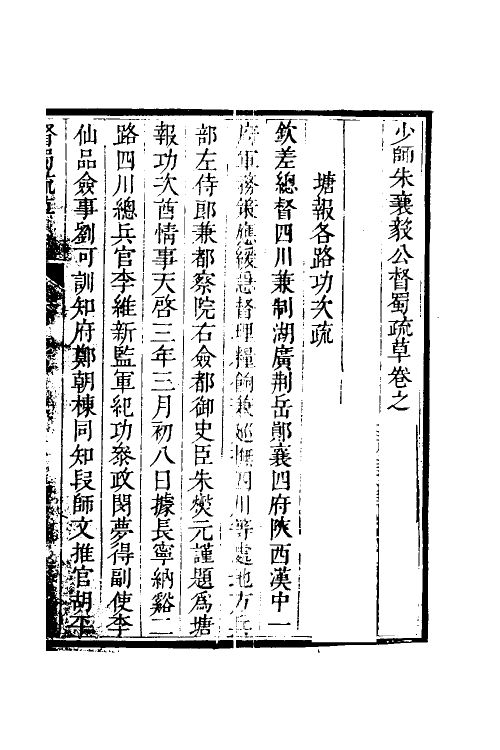 少師朱襄毅公督蜀疏草卷之
塘報各路功次疏
欽差總督四川兼制湖廣荆岳鄖襄四府陝西漢中一
府軍務策應緩急督理糧餉兼巡撫四川等處地方兵
部左侍郎兼都察院右僉都御史臣朱燮元謹題爲塘
報功次酋情事天啓三年三月初八日據長寧納谿二
路四川總兵官李維新監軍紀功叅政閔夢得副使李
仙品僉事劉可訓知府鄭朝棟同知叚師文推官胡平
督蜀疏草